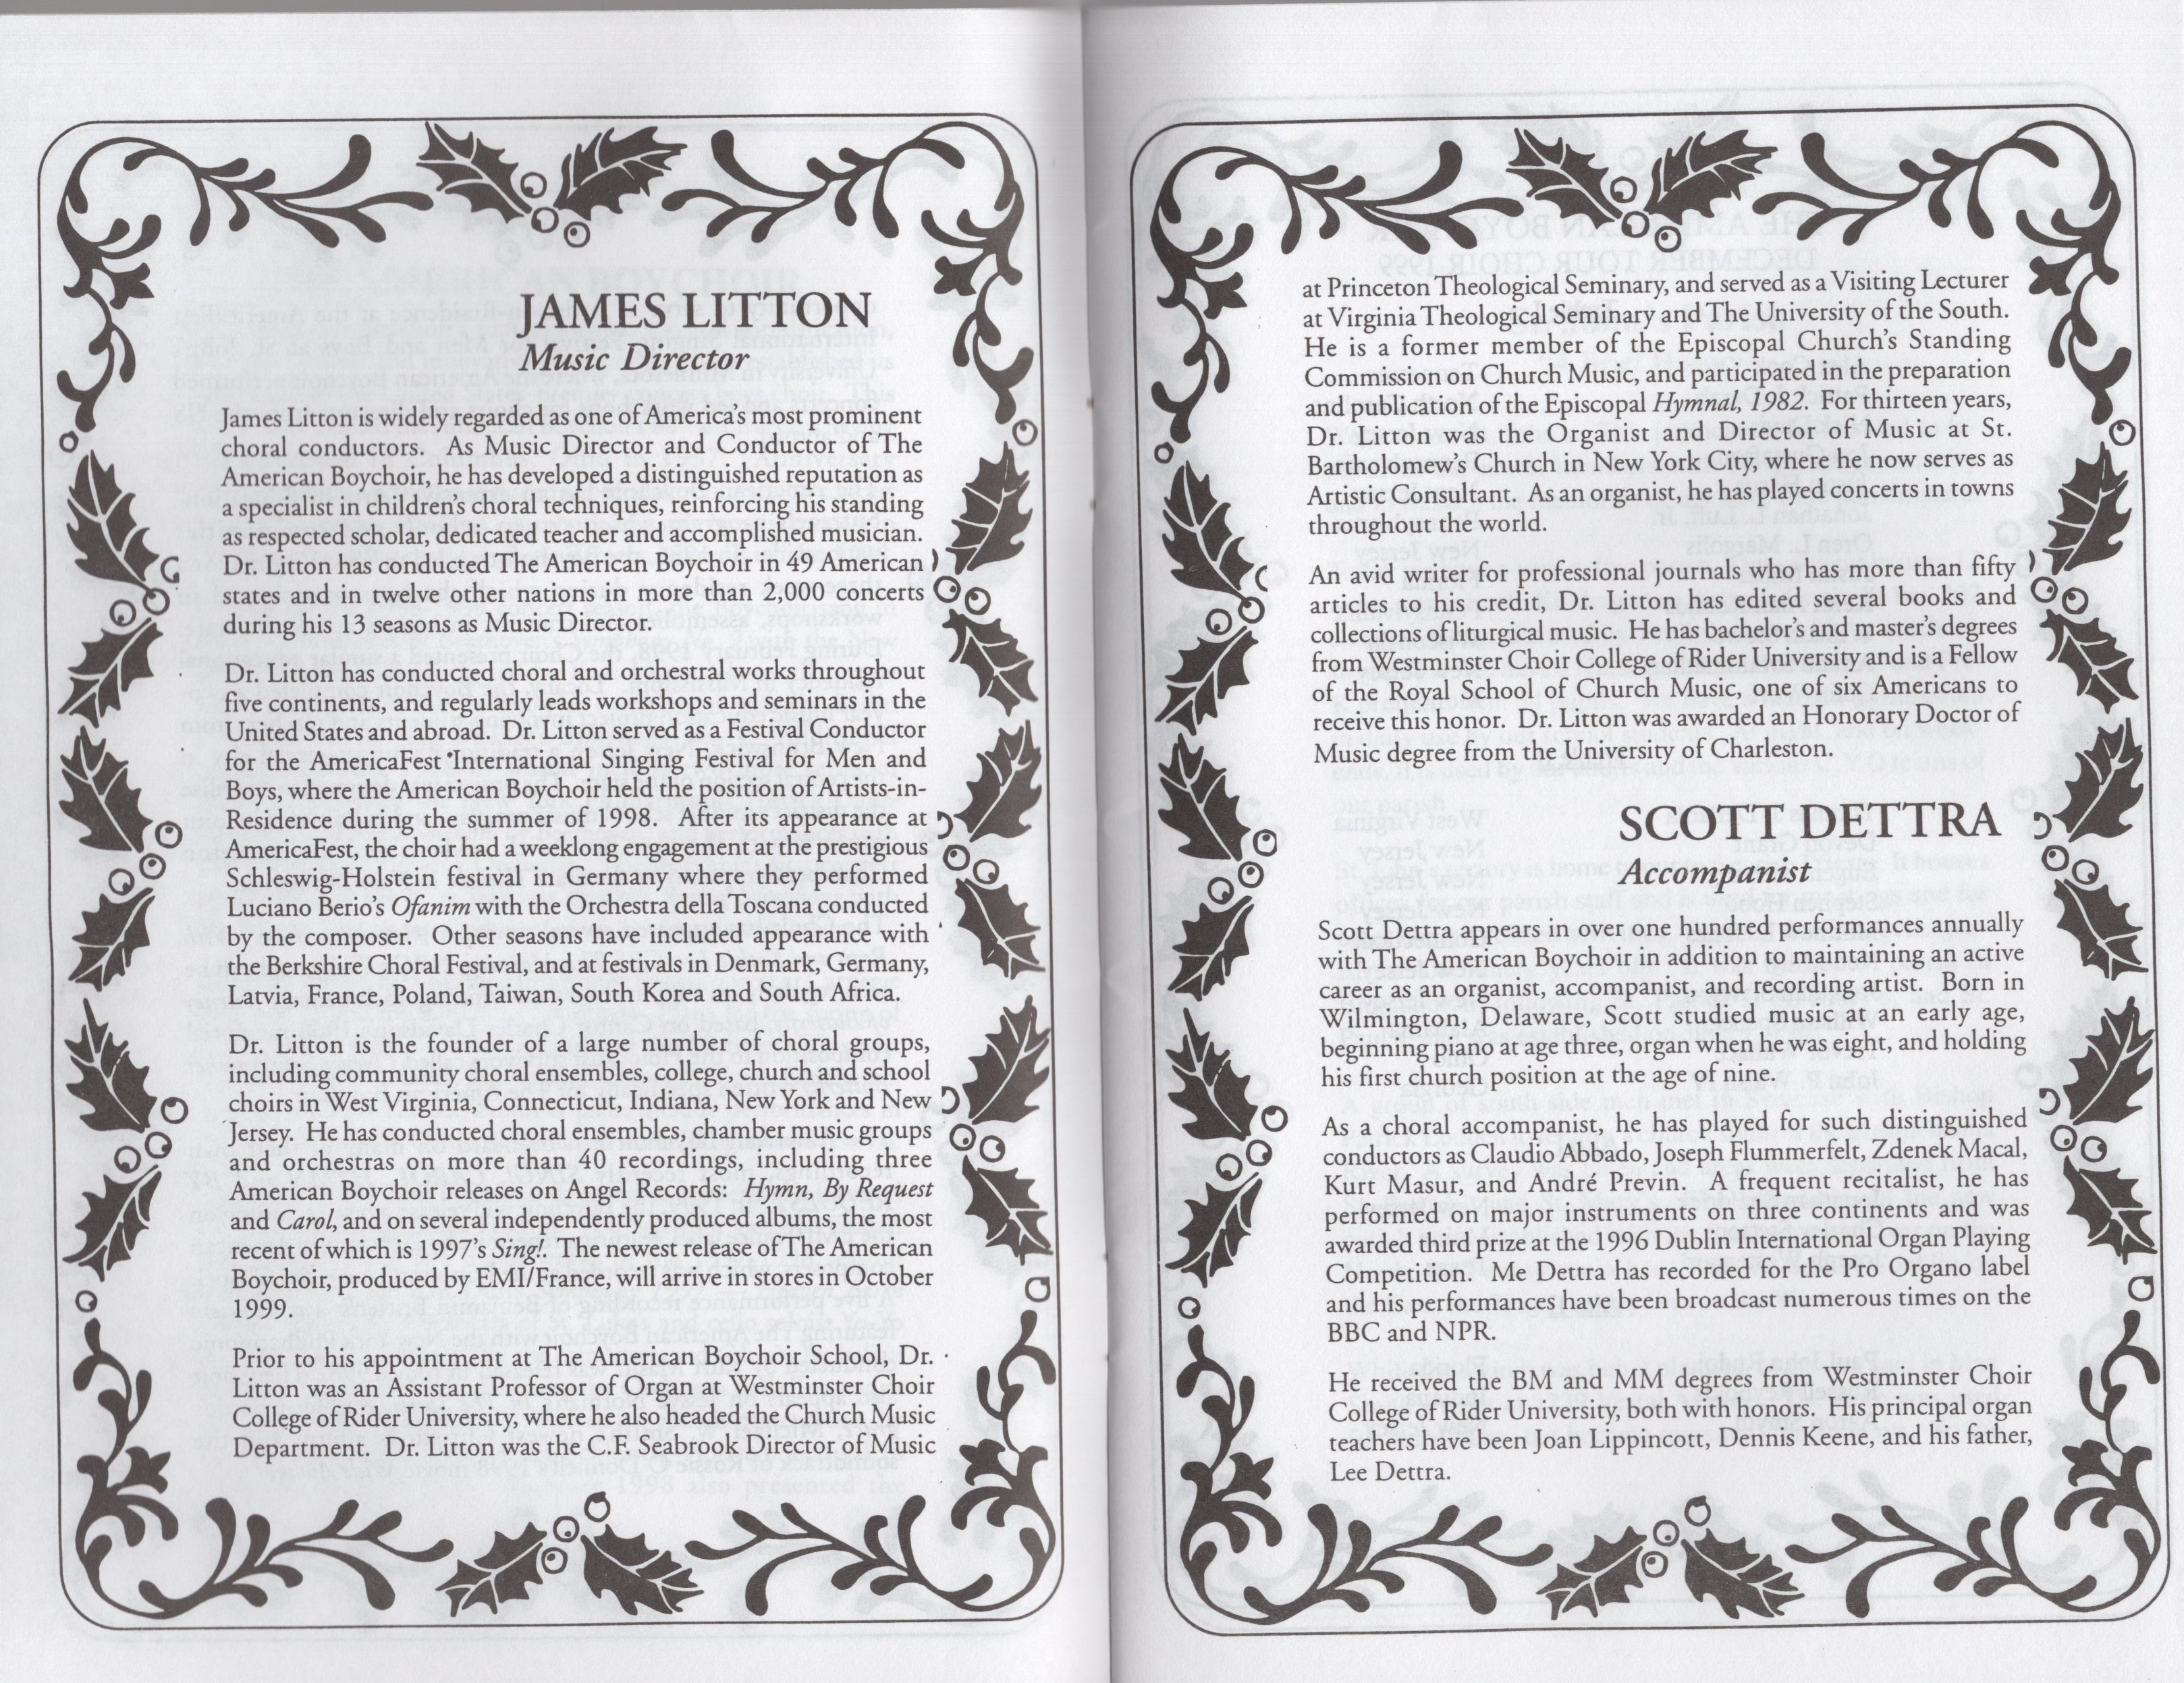 JAMES LITTON
Music Director
James Litton is widely regarded as one of America's most prominent
choral conductors. As Music Director and Conductor of The
American Boychoir, he has developed a distinguished reputation as
a specialist in children's choral techniques, reinforcing his standing
as respected scholar, dedicated teacher and accomplished musician.
Dr. Litton has conducted The American Boychoir in 49 American
states and in twelve other nations in more than 2,000 concerts
during his 13 seasons as Music Director.
Dr. Litton has conducted choral and orchestral works throughout
five continents, and regularly leads workshops and seminars in the
United States and abroad. Dr. Litton served as a Festival Conductor
for the AmericaFest International Singing Festival for Men and
Boys, where the American Boychoir held the position of Artists-in-
Residence during the summer of 1998. After its appearance at
AmericaFest, the choir had a weeklong engagement at the prestigious
Schleswig-Holstein festival in Germany where they performed
Luciano Berio's Ofanim with the Orchestra della Toscana conducted
by the composer. Other seasons have included appearance with
the Berkshire Choral Festival, and at festivals in Denmark, Germany,
Latvia, France, Poland, Taiwan, South Korea and South Africa.
Dr. Litton is the founder of a large number of choral groups,
including community choral ensembles, college, church and school
choirs in West Virginia, Connecticut, Indiana, New York and New
Jersey. He has conducted choral ensembles, chamber music groups
and orchestras on more than 40 recordings, including three
American Boychoir releases on Angel Records: Hymn, By Request
and Carol, and on several independently produced albums, the most
recent of which is 1997's Sing!. The newest release of The American
Boychoir, produced by EMI/France, will arrive in stores in October
1999.
Prior to his appointment at The American Boychoir School, Dr.
Litton was an Assistant Professor of Organ at Westminster Choir
College of Rider University, where he also headed the Church Music
Department. Dr. Litton was the C.F. Seabrook Director of Music
at Princeton Theological Seminary, and served as a Visiting Lecturer
at Virginia Theological Seminary and The University of the South.
He is a former member of the Episcopal Church's Standing
Commission on Church Music, and participated in the preparation
and publication of the Episcopal Hymnal, 1982. For thirteen years,
Dr. Litton was the Organist and Director of Music at St.
Bartholomew's Church in New York City, where he now serves as
Artistic Consultant. As an organist, he has played concerts in towns
throughout the world.
An avid writer for professional journals who has more than fifty
articles to his credit, Dr. Litton has edited several books and
collections of liturgical music. He has bachelor's and master's degrees
from Westminster Choir College of Rider University and is a Fellow
of the Royal School of Church Music, one of six Americans to
receive this honor. Dr. Litton was awarded an Honorary Doctor of
Music degree from the University of Charleston.
SCOTT DETTRA
Accompanist
Scott Dettra appears in over one hundred performances annually
with The American Boychoir in addition to maintaining an active
career as an organist, accompanist, and recording artist. Born in
Wilmington, Delaware, Scott studied music at an early age,
beginning piano at age three, organ when he was eight, and holding
his first church position at the age of nine.
As a choral accompanist, he has played for such distinguished
conductors as Claudio Abbado, Joseph Flummerfelt, Zdenek Macal,
Kurt Masur, and André Previn. A frequent recitalist, he has
performed on major instruments on three continents and was
awarded third prize at the 1996 Dublin International Organ Playing
Competition. Me Dettra has recorded for the Pro Organo label
and his performances have been broadcast numerous times on the
BBC and NPR.
He received the BM and MM degrees from Westminster Choir
College of Rider University, both with honors. His principal organ
teachers have been Joan Lippincott, Dennis Keene, and his father,
Lee Dettra.